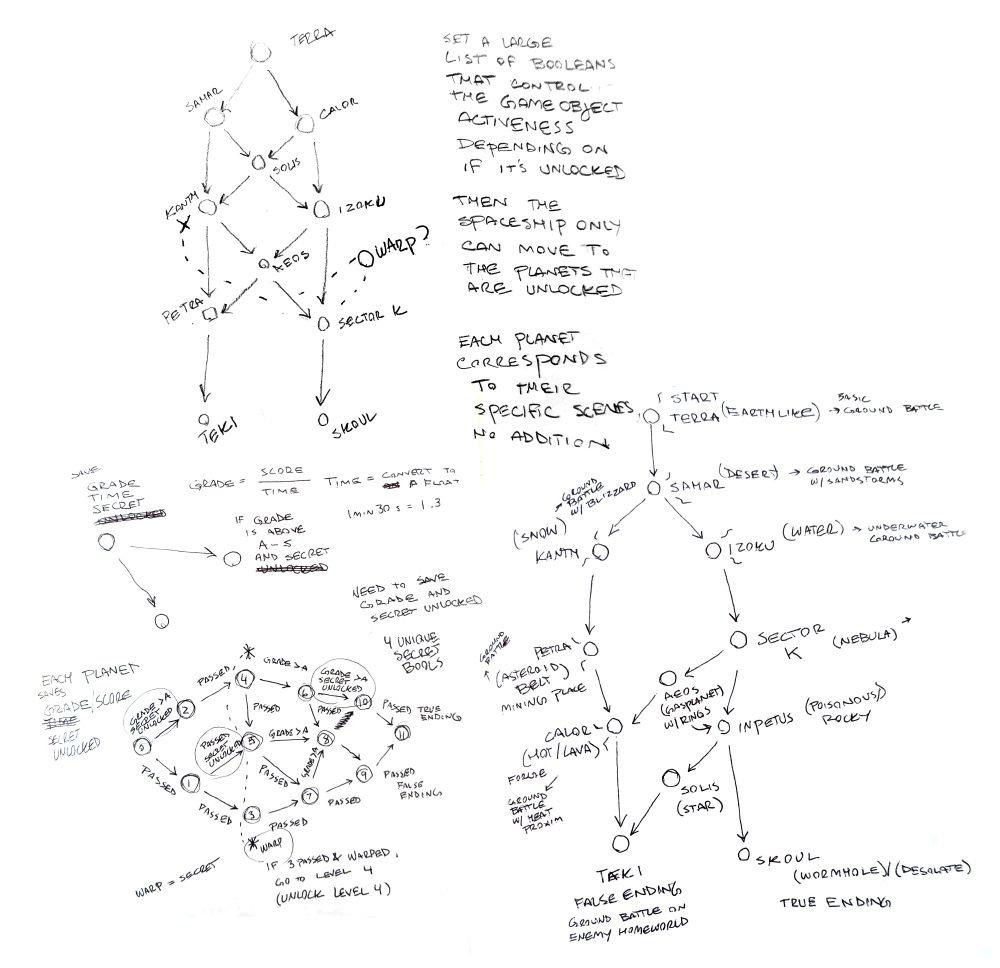 TERRA
SAMAR
CALOR
SOLIS
KANTM
IZOKU
WARP?
AEOS
PETRA
SECTOR K
TEKI
SKOUL
SET A LARGE
LIST OF BOOLEANS
THAT CONTROL
THE GAMEOBJECT
ACTIVENESS
DEPENDING ON
IF IT'S UNLOCKED
THEN THE
SPACESHIP ONLY
CAN MOVE TO
THE PLANETS THT
ARE UNLOCKED
EACH PLANET
CORRESPONDS
TO THEIR
SPECIFIC SCENES,
NO ADDITION
SAVE
GRADE
TIME
SECRET
UNLOCKED
GRADE = SCORE
TIME
TIME = CONVERT TO
A FLOAT
1 MIN 30 S = 1.3
IF GRADE
IS ABOVE
A-S
AND SECRET
UNLOCKED
NEED TO SAVE
GRADE AND
SECRET UNLOCKED
4 UNIQUE
SECRET
BOOLS
EACH PLANET
SAVES
GRADE/SCORE
TIME
SECRET
UNLOCKED
GRADE >A
SECRET
UNLOCKED
0
2
PASSED
4
*
GRADE >A
6
GRADE >A
SECRET
UNLOCKED
10
PASSED TRUE
ENDING
11
PASSED
PASSED
SECRET
UNLOCKED
5
GRADE >A
PASSED
8
PASSED
1
PASSED
PASSED
GRADE >A
3
PASSED
7
PASSED
9
PASSED
FALSE
ENDING
* WARP
WARP = SECRET
IF 3 PASSED & WARPED,
GO TO LEVEL 4
(UNLOCK LEVEL 4)
START
TERRA (EARTHLIKE) → BASIC
GROUND BATTLE
SAMAR (DESERT) → GROUND BATTLE
W/SANDSTORMS
GROUND
BATTLE
W/ BLIZZARD
(SNOW)
KANTM
IZOKU (WATER) → UNDERWATER
GROUND BATTLE
GROUND
BATTLE
PETRA
(ASTEROID
BELT)
MINING PLACE
SECTOR
K (NEBULA)
AEOS
(GASPLANET)
W/RINGS
INPETUS (POISONOUS)/
ROCKY
CALOR
(HOT/LAVA)
FORGE
GROUND
BATTLE
W/ HEAT
PROXIM
SOLIS
(STAR)
TEKI
FALSE ENDING
GROUND BATTLE ON
ENEMY HOMEWORLD
SKOUL
(WORMHOLE)/(DESOLATE)
TRUE ENDING